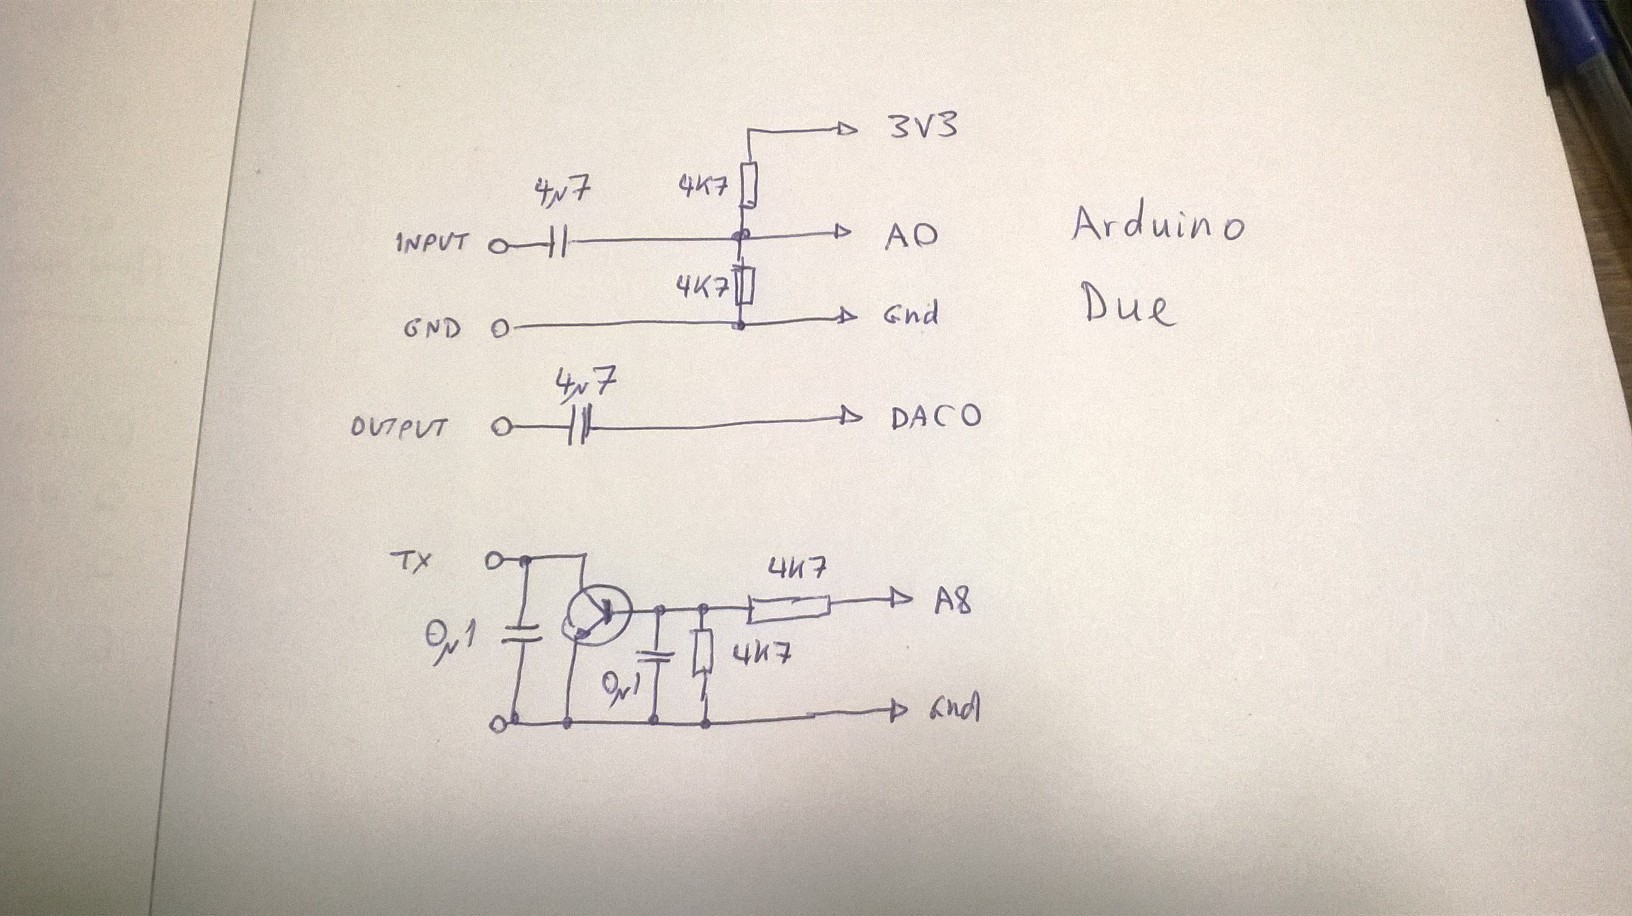 3V3
4µ7
4K7
INPUT
A0
Arduino
4K7
GND
Gnd
Due
4µ7
OUTPUT
DAC0
TX
4K7
A8
0µ1
4K7
0µ1
Gnd